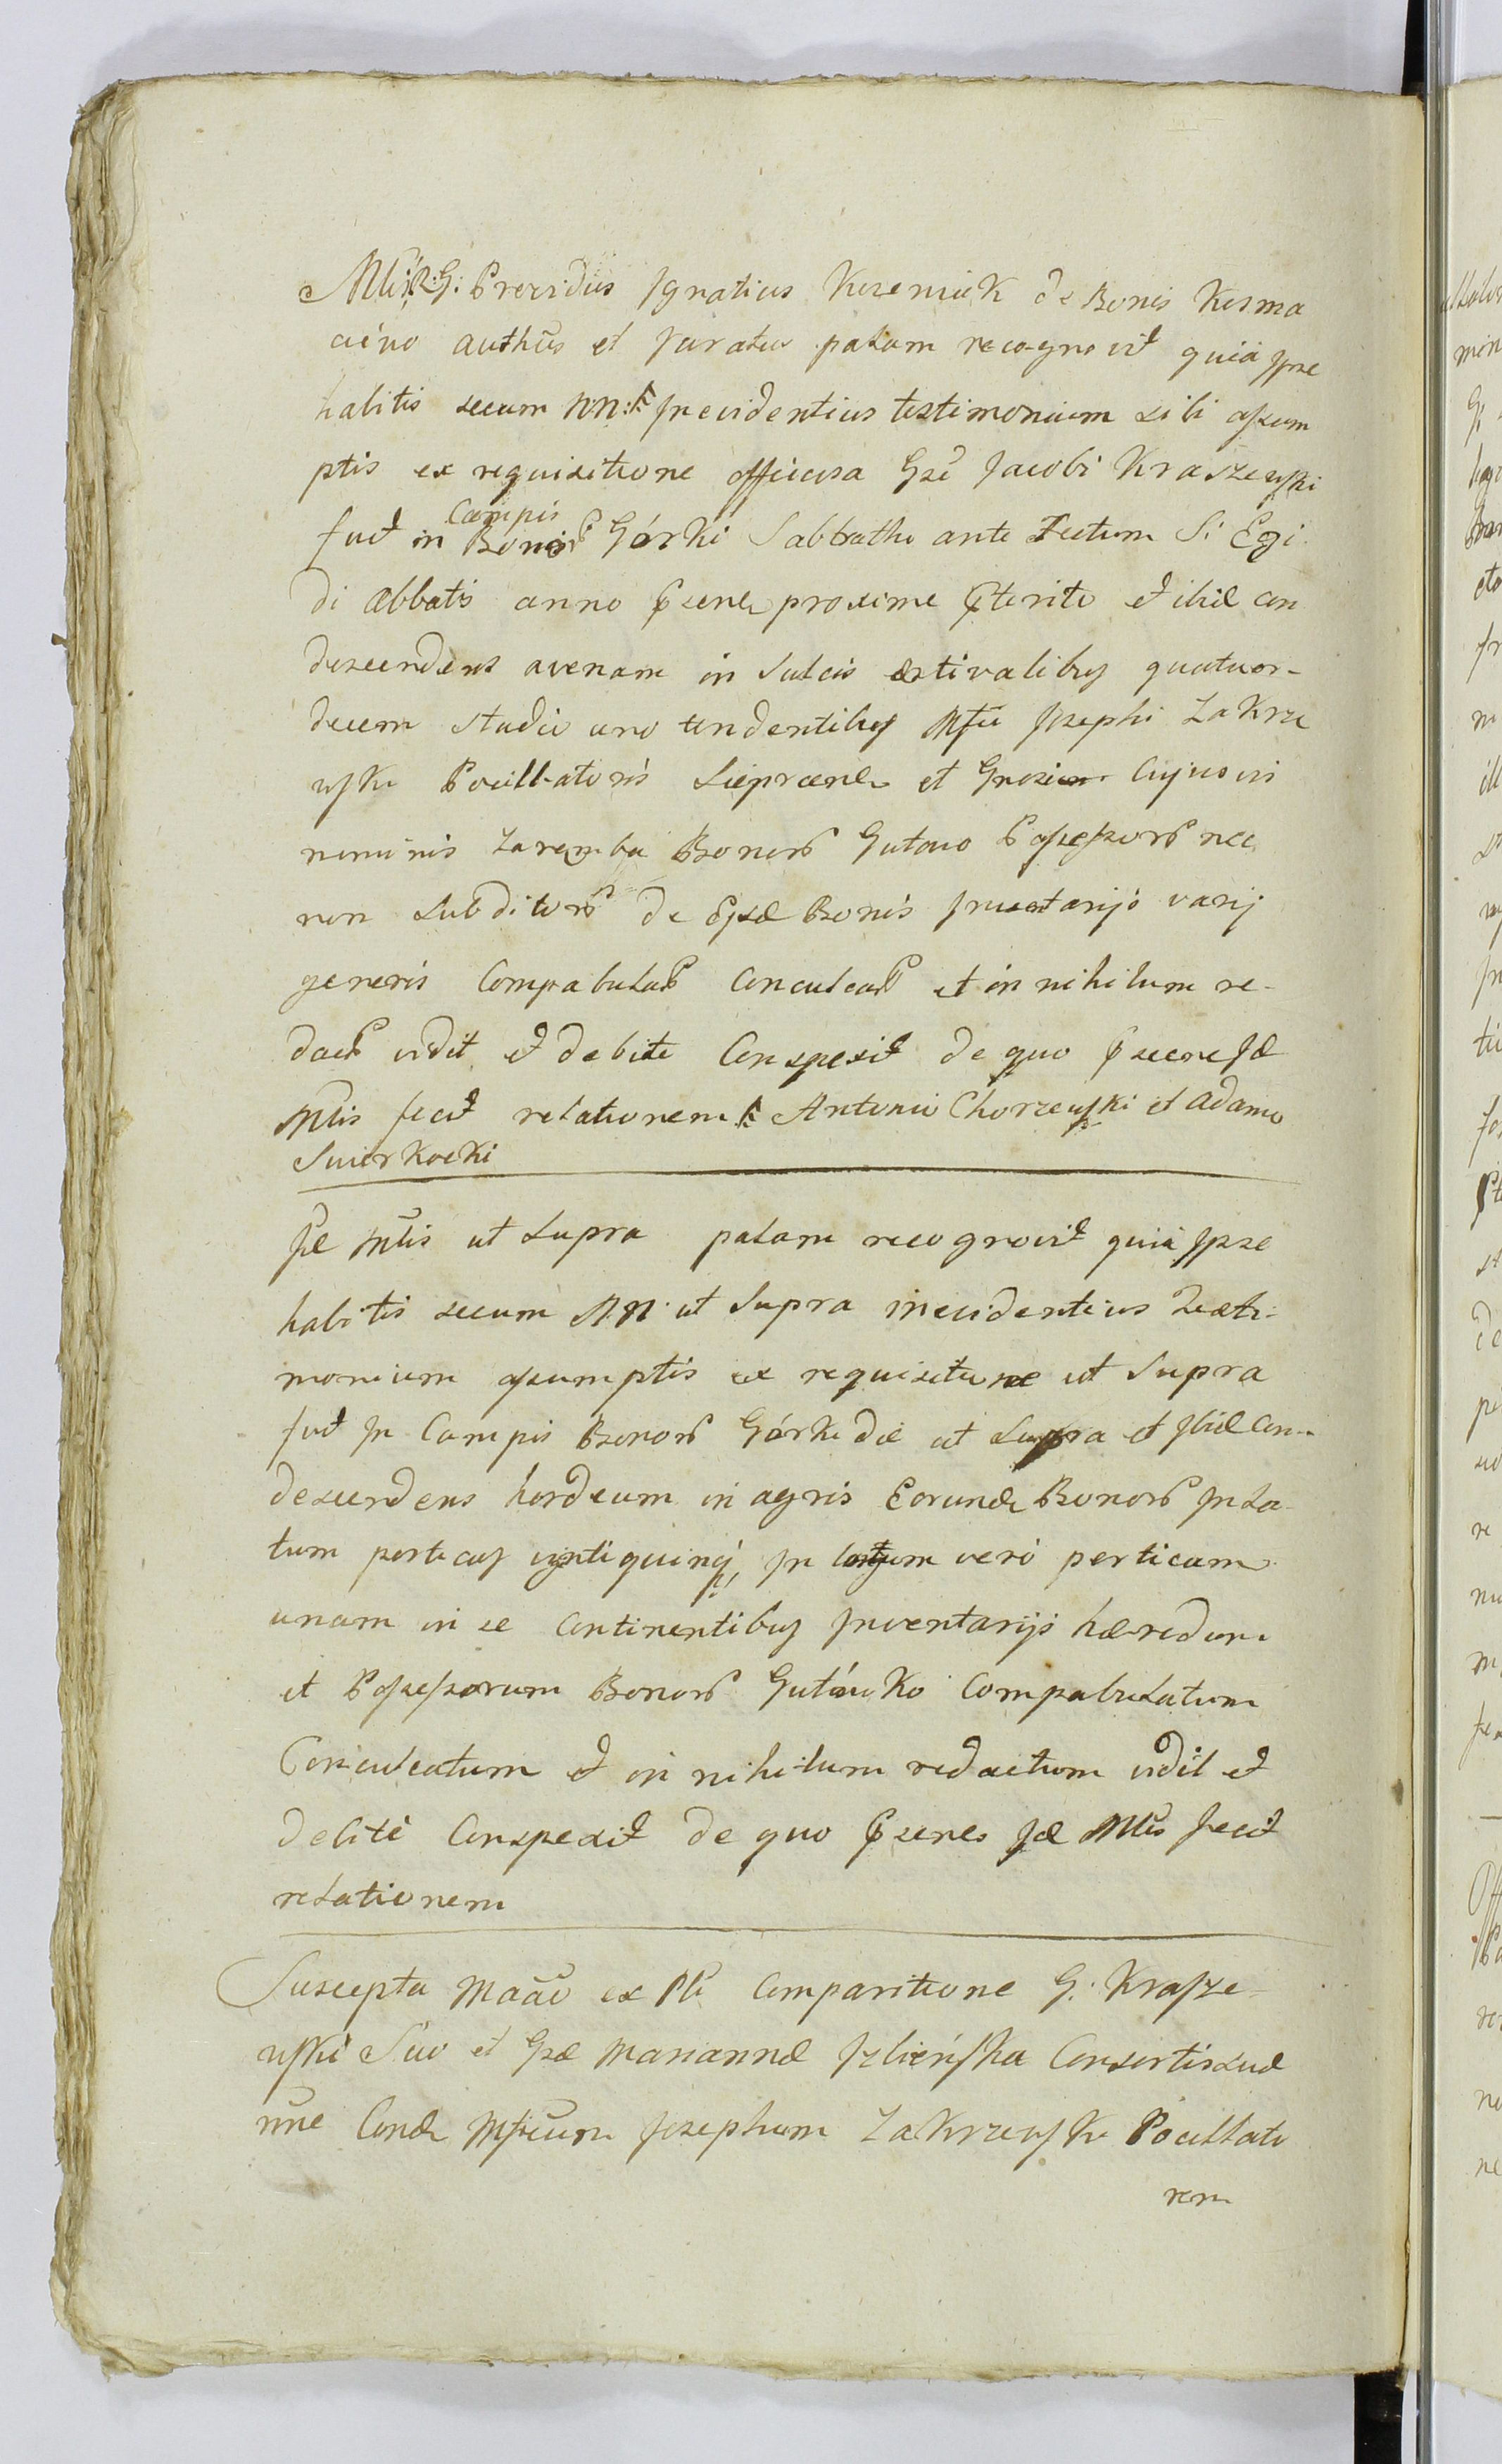 Mlis R: G: Providus Ignatius Kozeniek de Bonis Kosma
cino authūs et Juratus palam recognovit quia Ipse
habitis secum NN: Inevidentius testimonium sibi assum
ptis ex requisitione officiosa Gsi Jacobi Kraszewski
fuit in Campis Bonor Górki Sabbatho ante Festum Si Egi
di Abbatis anno psenti proxime pterito et ibid con
descendens avenam in Sulcis æstivalibus quatuor-
decem Stadio uno tendentibus Mfci Josephi Zakrze
wski Pocillatoris et Grosi Cujusvis
nominis Zaremba Bonor Gutowo Possessor nec
non Subditor de Eisd Bonis Inventarijs varij
generis Compabulat Conculcat et in nihilum re-
dact vidit et debite Conspexit de quo psens Id
Mlis fecit relationem Antonio Chorzewski et Adamo
Swierkocki
Id Mlis ut Supra palam recognovit quia Ipse
habitis secum NN ut Supra inevidentius Testi-
monium assumptis ex requisitione ut Supra
fuit In Campis Bonor Górki die ut Supra et Ibid Con-
descendens hordeum in agris Eorund Bonor In La-
tum perticas vigintiquinq, In longum vero perticam
unam in se Continentibus Inventarijs hæredum
et Possessorum Bonor Gutówko Compabulatum
Conculcatum et in nihilum redactum vidit et
debite Conspexit de quo psens Id Mlis fecit
relationem
Suscepta Maao ex Pti Comparitione G. Krasze-
wski Suo et Gsæ Mariannæ Izbieńska Consortis suæ
nne Cond Mficum Josephum Zakrzewski Pocillato
rem